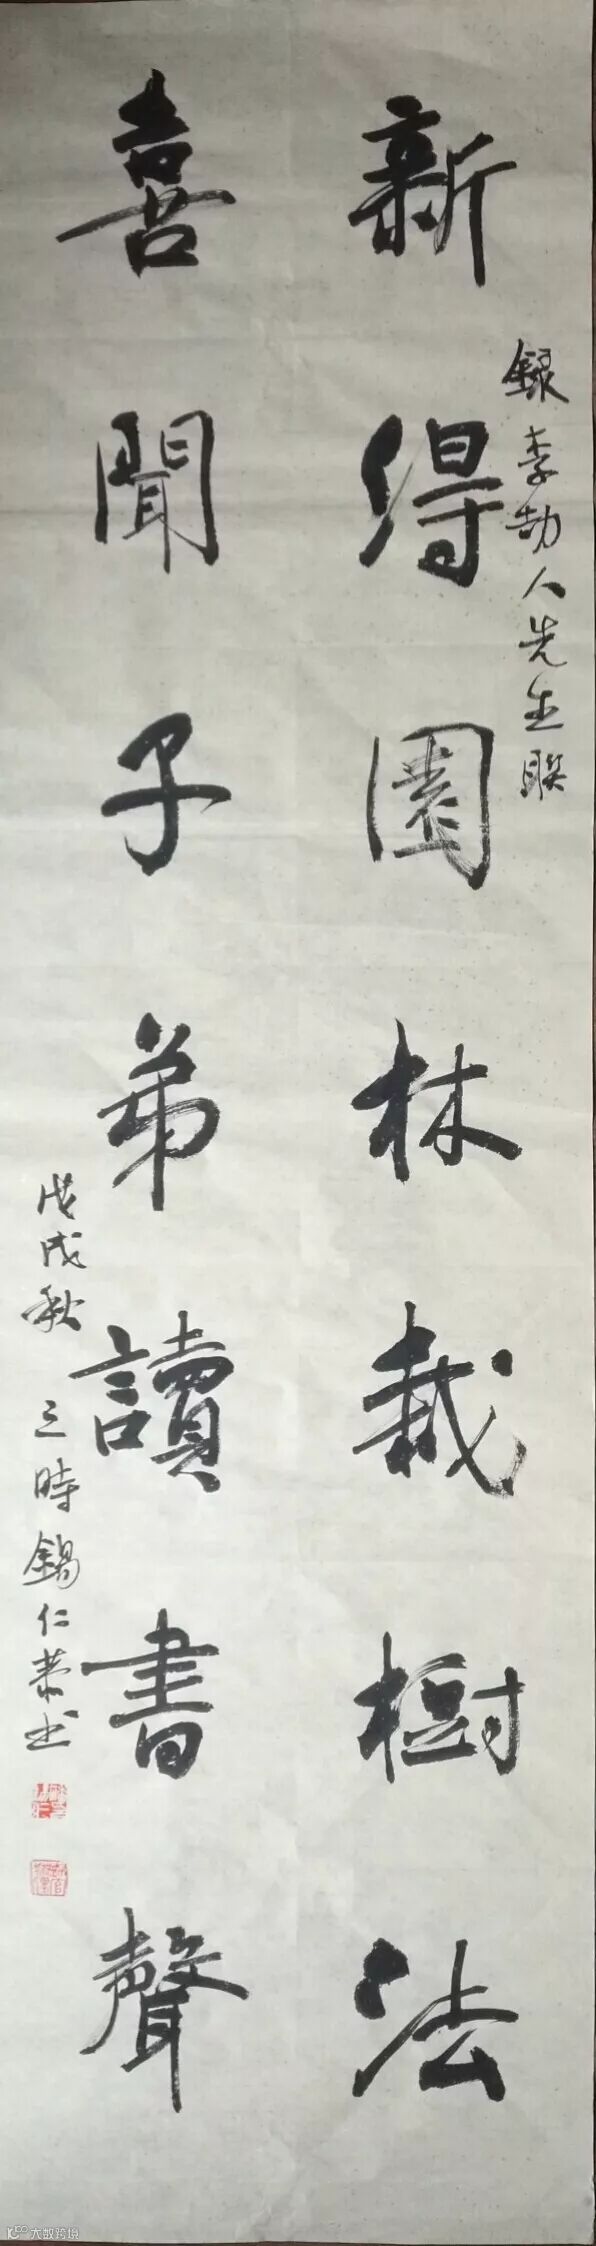 錄李劼人先生聯
新得園林栽樹法
喜聞子弟讀書聲
戊戌秋
三時錫仁恭书
大数跨境